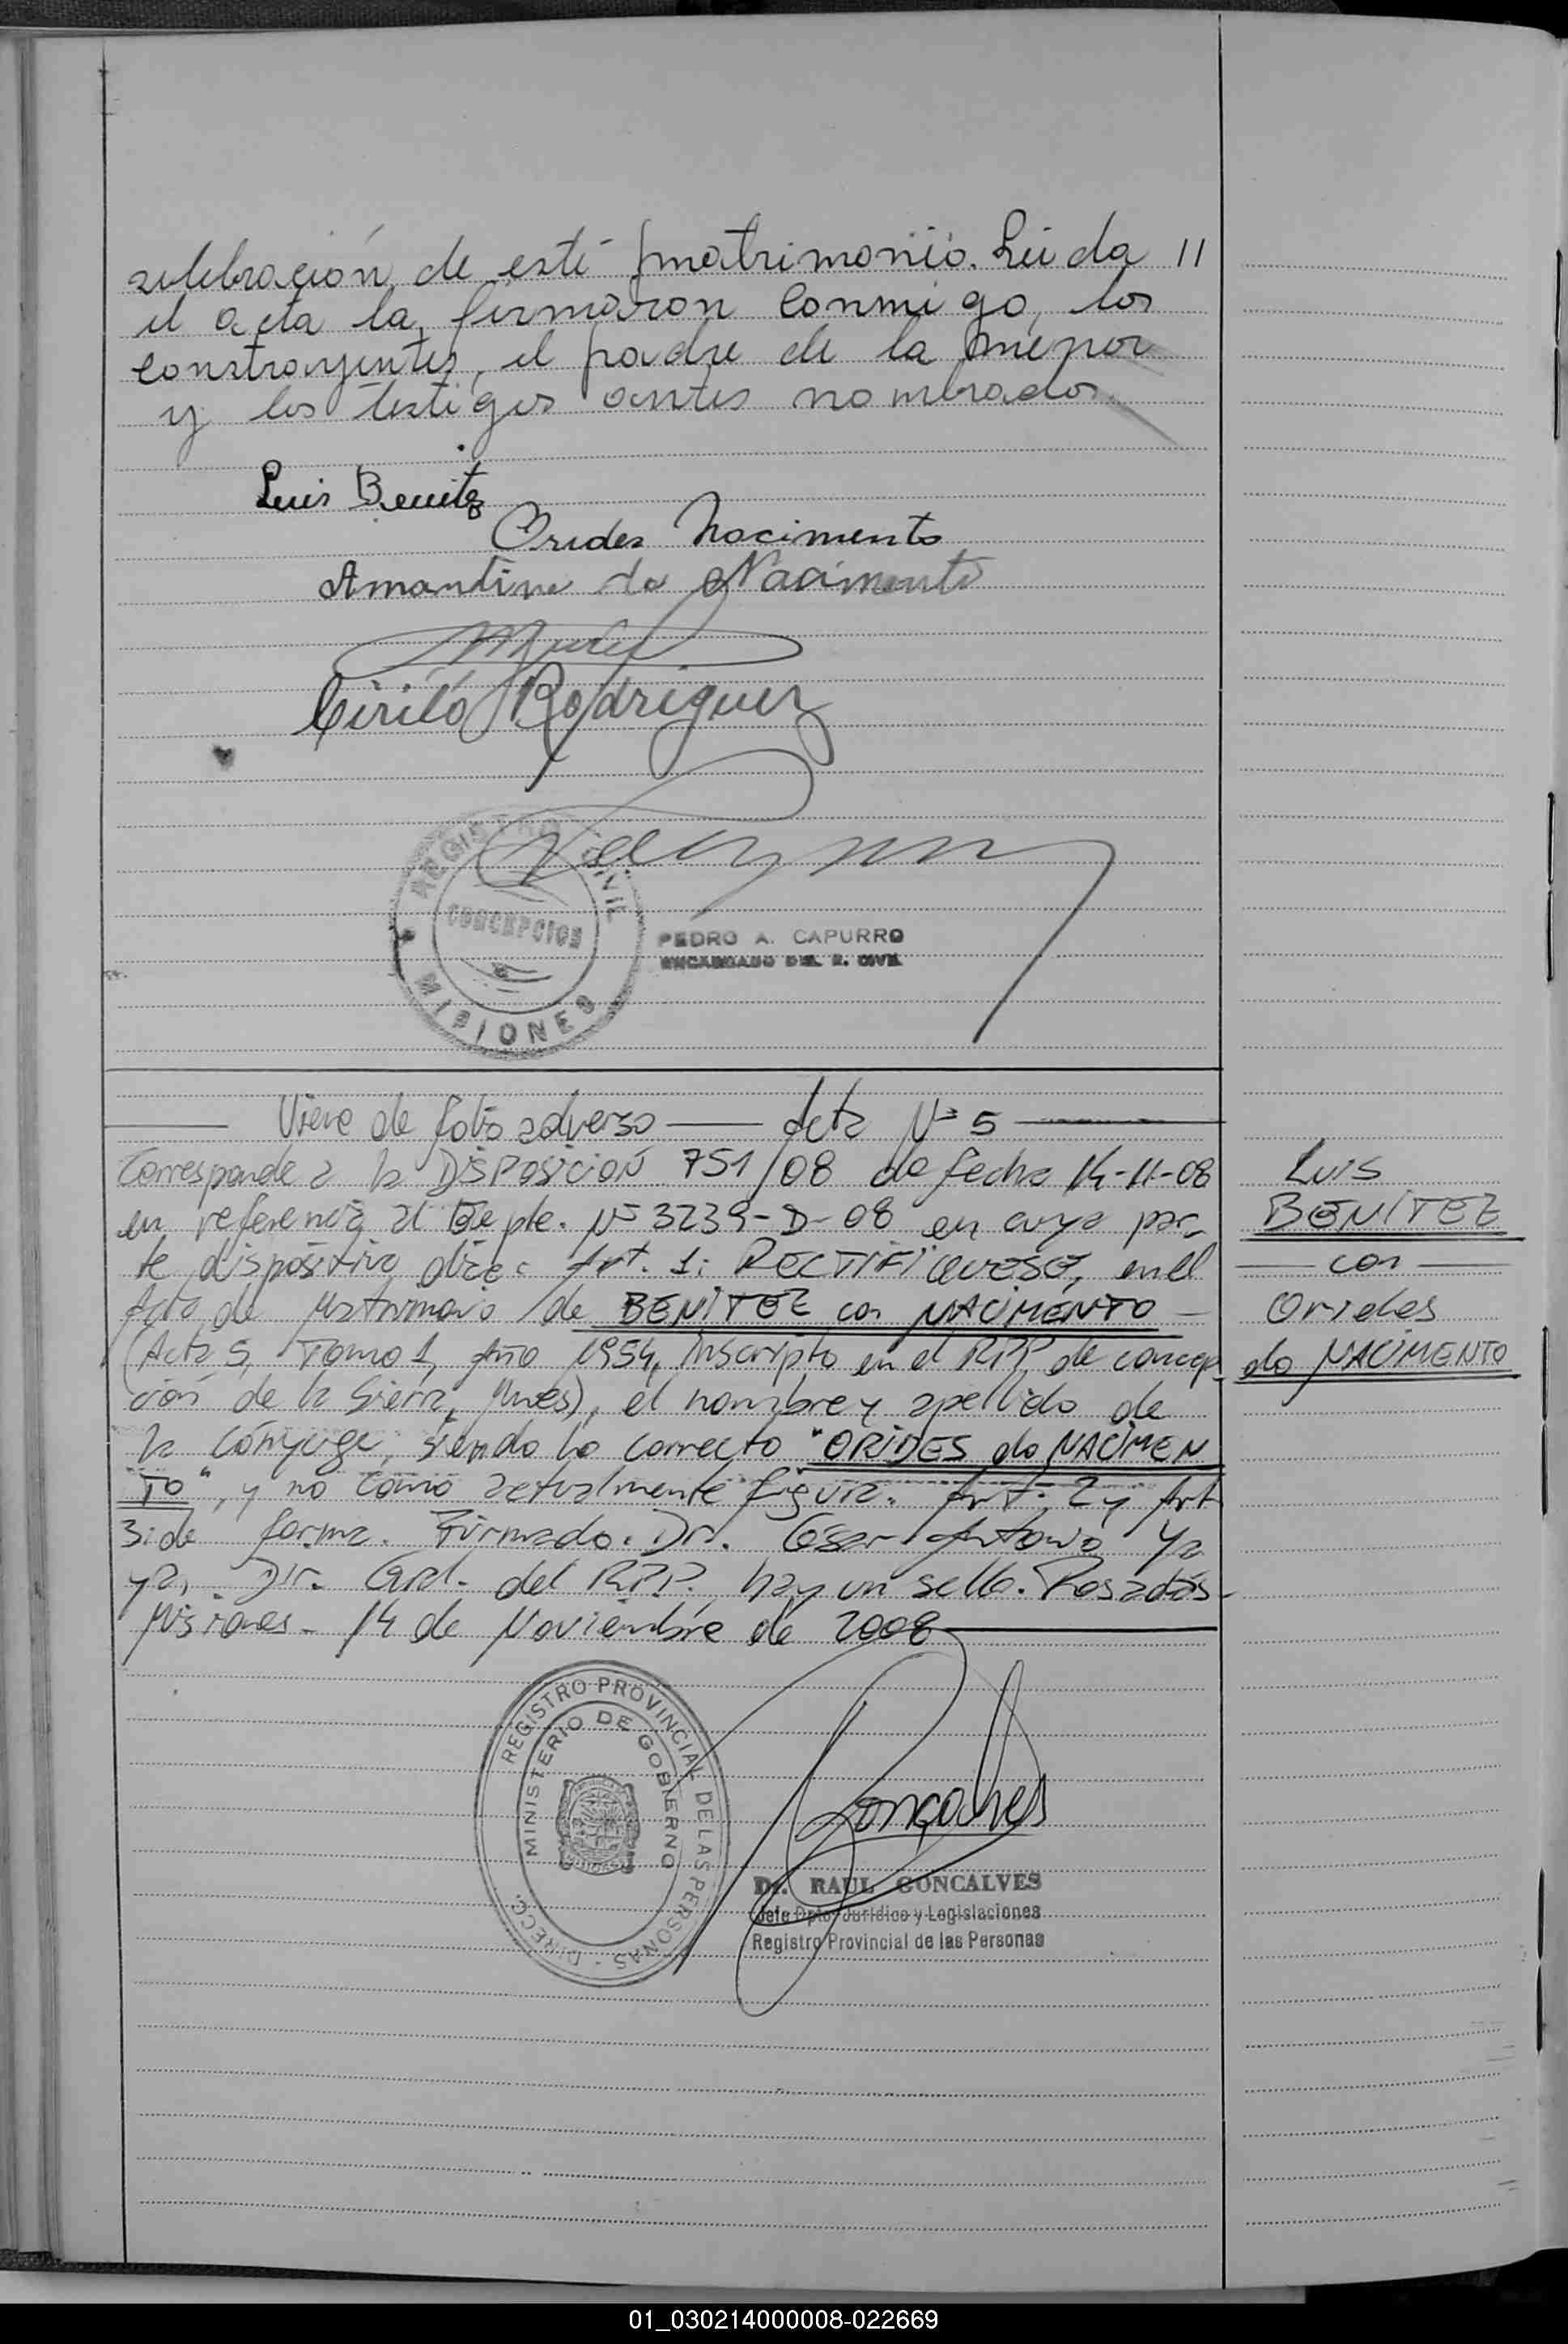 celebración de este matrimonio. Leida //
el acta la firmaron conmigo, los
constrayentes, el padre de la menor
y los testigos antes nombrados.
Luis Benitez
Orides Nacimento
Amantino do Nacimento
Cirilo Rodriguez
REGISTRO CIVIL
CONCEPCION
MISIONES
PEDRO A. CAPURRO
ENCARGADO DEL R. CIVIL
Viene de folio adverso — Acta Nº 5
Corresponde a la DISPOSICION 751/08 de fecha 14-11-08
en referencia al Expte. Nº 3239-D-08 en cuya par-
te dispositiva dice: Art. 1: RECTIFIQUESE, en el
Acta de Matrimonio de BENITEZ con NACIMENTO -
(Acta 5, Tomo 1, Año 1954, inscripto en el RPP de concep
ción de la Sierra, Mnes), el nombre y apellido de
la cónyuge, siendo lo correcto "ORIDES do NACIMEN
TO", y no como actualmente figura. Art. 2 y Art
3: de forma. Firmado. Dr. Cesar Antonio Ya
ya, Dir. Gral. del RPP. hay un sello. Posadas-
Misiones - 14 de Noviembre de 2008
Luis
BENITEZ
con
Orides
do NACIMENTO
REGISTRO PROVINCIAL DE LAS PERSONAS - DIRECC.
MINISTERIO DE GOBIERNO
Gonçalves
Dr. RAUL GONCALVES
Jefe Dpto. Jurídico y Legislaciones
Registro Provincial de las Personas
01_030214000008-022669